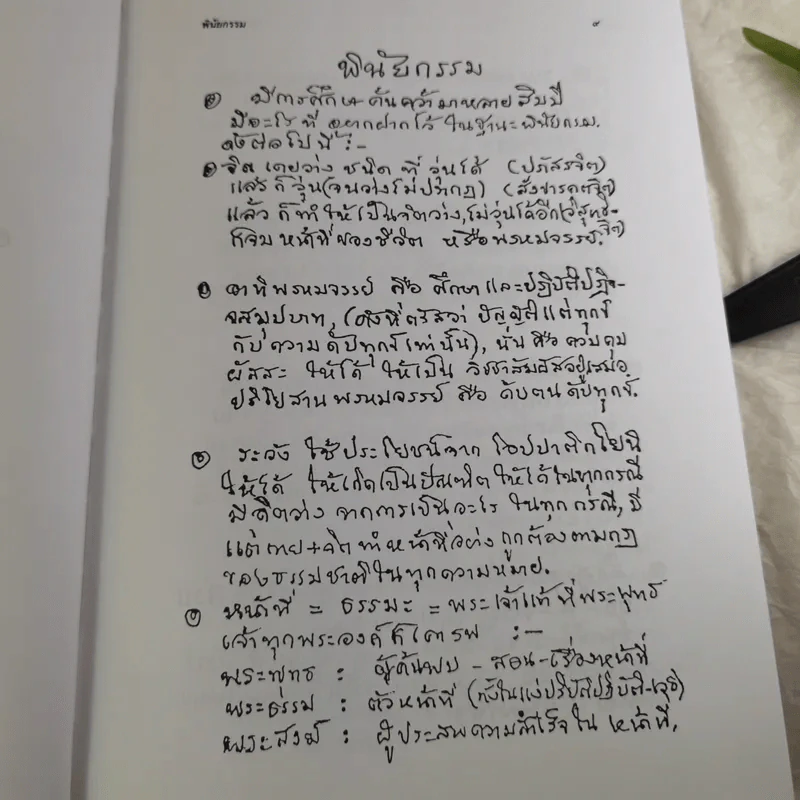 พินัยกรรม ๙
พินัยกรรม
มีการศึกษาค้นคว้ามาหลายสิบปี
มีอะไรที่ อยากฝากไว้ ในฐานะพินัยกรรม.
ดังต่อไปนี้ :-
จิตเดิมว่าง ชนิด ที่ วุ่นได้ (ปภัสสรจิต)
แล้ว ก็ วุ่น(จนว่างไม่ปรากฏ) (สังขารคตจิต)
แล้ว ก็ทำให้เป็นจิตว่าง, ไม่วุ่นได้อีก(วิสุทธิ-
จิต)
ก็จบ หน้าที่ของชีวิต หรือพรหมจรรย์.
อาทิพรหมจรรย์ คือ ศึกษาและปฏิบัติปฏิจ-
จสมุปบาท, (ดังที่ตรัสว่า บัญญัติแต่ทุกข์
กับ ความดับทุกข์เท่านั้น), นั่น คือ ควบคุม
ผัสสะ ให้ได้ ให้เป็น วิชชาสัมผัสอยู่เสมอ
ปริโยสานพรหมจรรย์ คือ ดับตน ดับทุกข์.
ระวัง ใช้ประโยชน์จาก โอปปาติกโยนิ
ให้ได้ ให้เกิดเป็นบัณฑิต ให้ได้ในทุกกรณี
มีจิตว่าง จากการเป็นอะไร ในทุกกรณี, มี
แต่ กาย+จิต ทำหน้าที่อย่าง ถูกต้องตามกฎ
ของธรรมชาติในทุกความหมาย.
หน้าที่ = ธรรมะ = พระเจ้าแท้ ที่พระพุทธ
เจ้าทุกพระองค์ก็เคารพ :-
พระพุทธ : ผู้ค้นพบ - สอน-เรื่องหน้าที่
พระธรรม : ตัวหน้าที่ (ทั้งในแง่ปริยัติปฏิบัติ-ปฏิเวธ)
พระสงฆ์ : ผู้ประสบความสำเร็จใน หน้าที่.